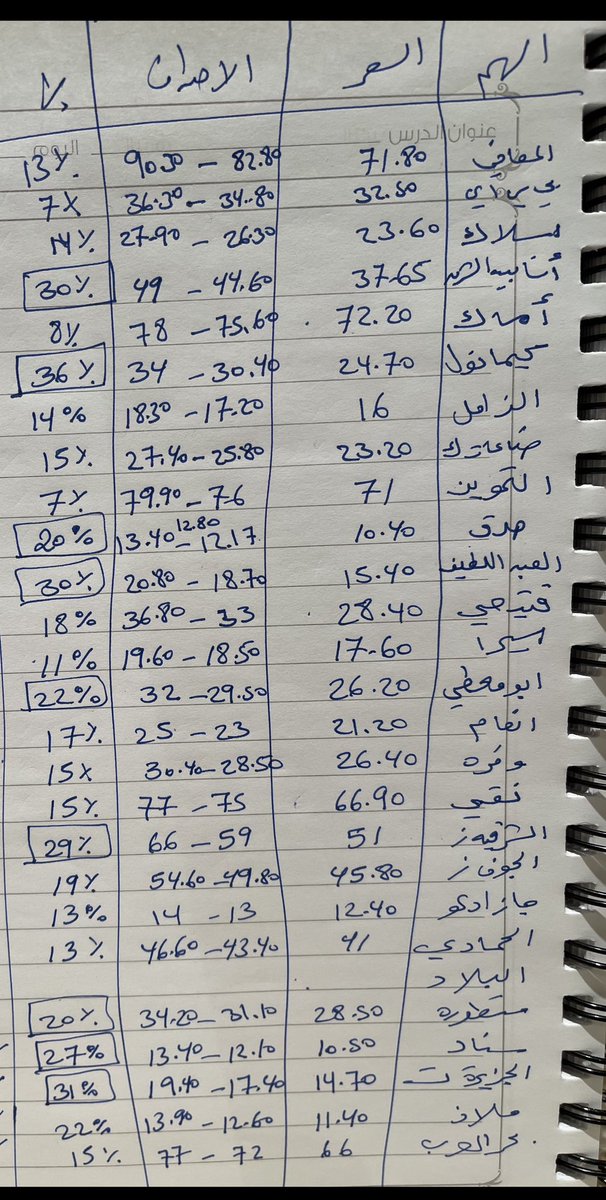 السهم السعر الاهداف %
عنوان الدرس اليوم
المعافي 71.80 82.80 - 90.30 13%
بي سي آي 32.50 34.80 - 36.30 7%
مسلاك 23.60 26.30 - 27.90 14%
أنابيب الشرق 37.65 44.60 - 49 30%
أمياك 72.20 75.60 - 78 8%
كيمانول 24.70 30.40 - 34 36%
الزامل 16 17.20 - 18.30 14%
صناعات ك 23.20 25.80 - 27.40 15%
التموين 71 76 - 79.90 7%
صدق 10.40 12.17 - 12.80 13.40 20%
العبد اللطيف 15.40 18.70 - 20.80 30%
فتيحي 28.40 33 - 36.80 18%
سيرا 17.60 18.50 - 19.60 11%
ابو معطي 26.20 29.50 - 32 22%
انعام 21.20 23 - 25 17%
وفره 26.40 28.50 - 30.40 15%
نقي 66.90 75 - 77 15%
الشرقيه ز 51 59 - 66 29%
الجوف ز 45.80 49.80 - 54.60 19%
جازادكو 12.40 13 - 14 13%
الحمادي 41 43.40 - 46.60 13%
البلاد
متطوره 28.50 31.10 - 34.20 20%
سناد 10.50 12.10 - 13.40 27%
الجزيرة ت 14.70 17.40 - 19.40 31%
ملاذ 11.40 12.60 - 13.90 22%
بحر العرب 66 72 - 77 15%